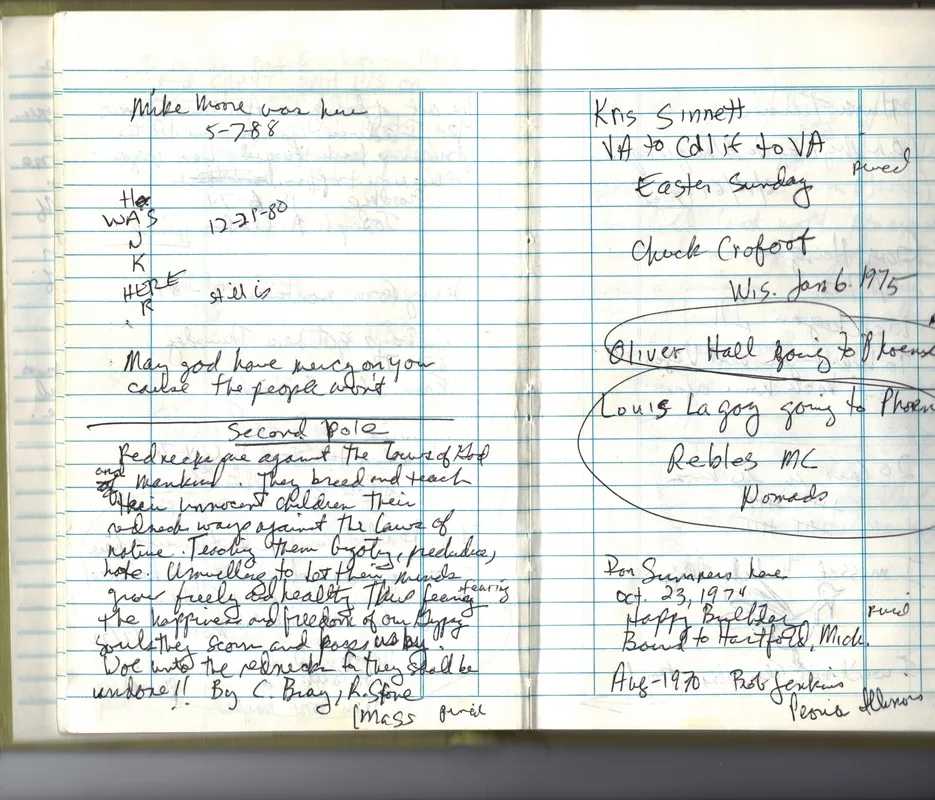 Mike Moore was here
5-7-88
He
WAS 12-21-80
N
K
HERE still is
R
May god have mercy on you
cause the people won't
Second Pole
Rednecks are against the Laws of God
and Mankind. They breed and teach
their innocent children their
redneck ways against the Laws of
nature. Teaching them bigotry, predudice,
hate. Unwilling to let their minds
grow freely and healthy Thus fearing fearing
the happiness and freedom of our Gypsy
souls they scorn and pass us by.
Woe unto the rednecks for they shall be
undone!! By C. Bray, R. Stone
(Mass
Kris Sinnett
VA to Calif to VA
Easter Sunday
Chuck Crofoot
Wis. Jan 6. 1975
Oliver Hall going to
Louis Lagoy going to
Rebles MC
Nomads
Ron Summers here
Oct. 23, 1974
Happy Birthday
Bound to Hartford, Mich.
Aug-1970 Bob Jenkins
Peoria Illinois